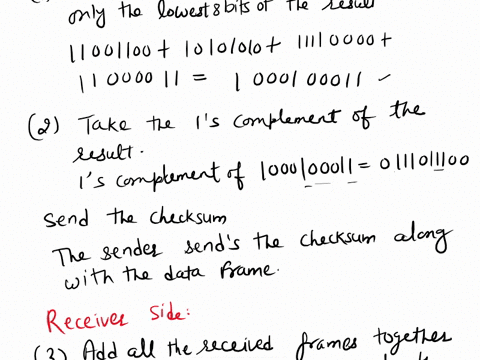 only the lowest 8 bits of the result
11001100 + 10101010 + 11110000 +
11000011 = 1000100011
(2) Take the 1's complement of the
result.
1's complement of 1000100011 = 0111011100
Send the checksum
The sender send's the checksum along
with the data frame.
Receiver Side:
(3) Add all the received frames together